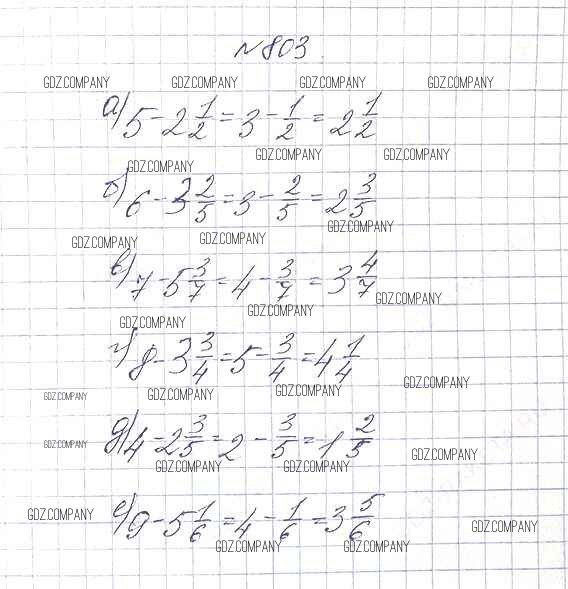 N 803
GDZ.COMPANY GDZ.COMPANY GDZ.COMPANY GDZ.COMPANY
а) 5 - 2 1/2 = 3 - 1/2 = 2 1/2
GDZ.COMPANY GDZ.COMPANY GDZ.COMPANY
б) 6 - 3 2/5 = 3 - 2/5 = 2 3/5
GDZ.COMPANY GDZ.COMPANY GDZ.COMPANY
в) 7 - 5 3/7 = 4 - 3/7 = 3 4/7
GDZ.COMPANY GDZ.COMPANY GDZ.COMPANY
г) 8 - 3 3/4 = 5 - 3/4 = 4 1/4
GDZ.COMPANY GDZ.COMPANY GDZ.COMPANY GDZ.COMPANY
д) 4 - 2 3/5 = 2 - 3/5 = 1 2/5
GDZ.COMPANY GDZ.COMPANY GDZ.COMPANY GDZ.COMPANY
е) 9 - 5 1/6 = 4 - 1/6 = 3 5/6
GDZ.COMPANY GDZ.COMPANY GDZ.COMPANY GDZ.COMPANY